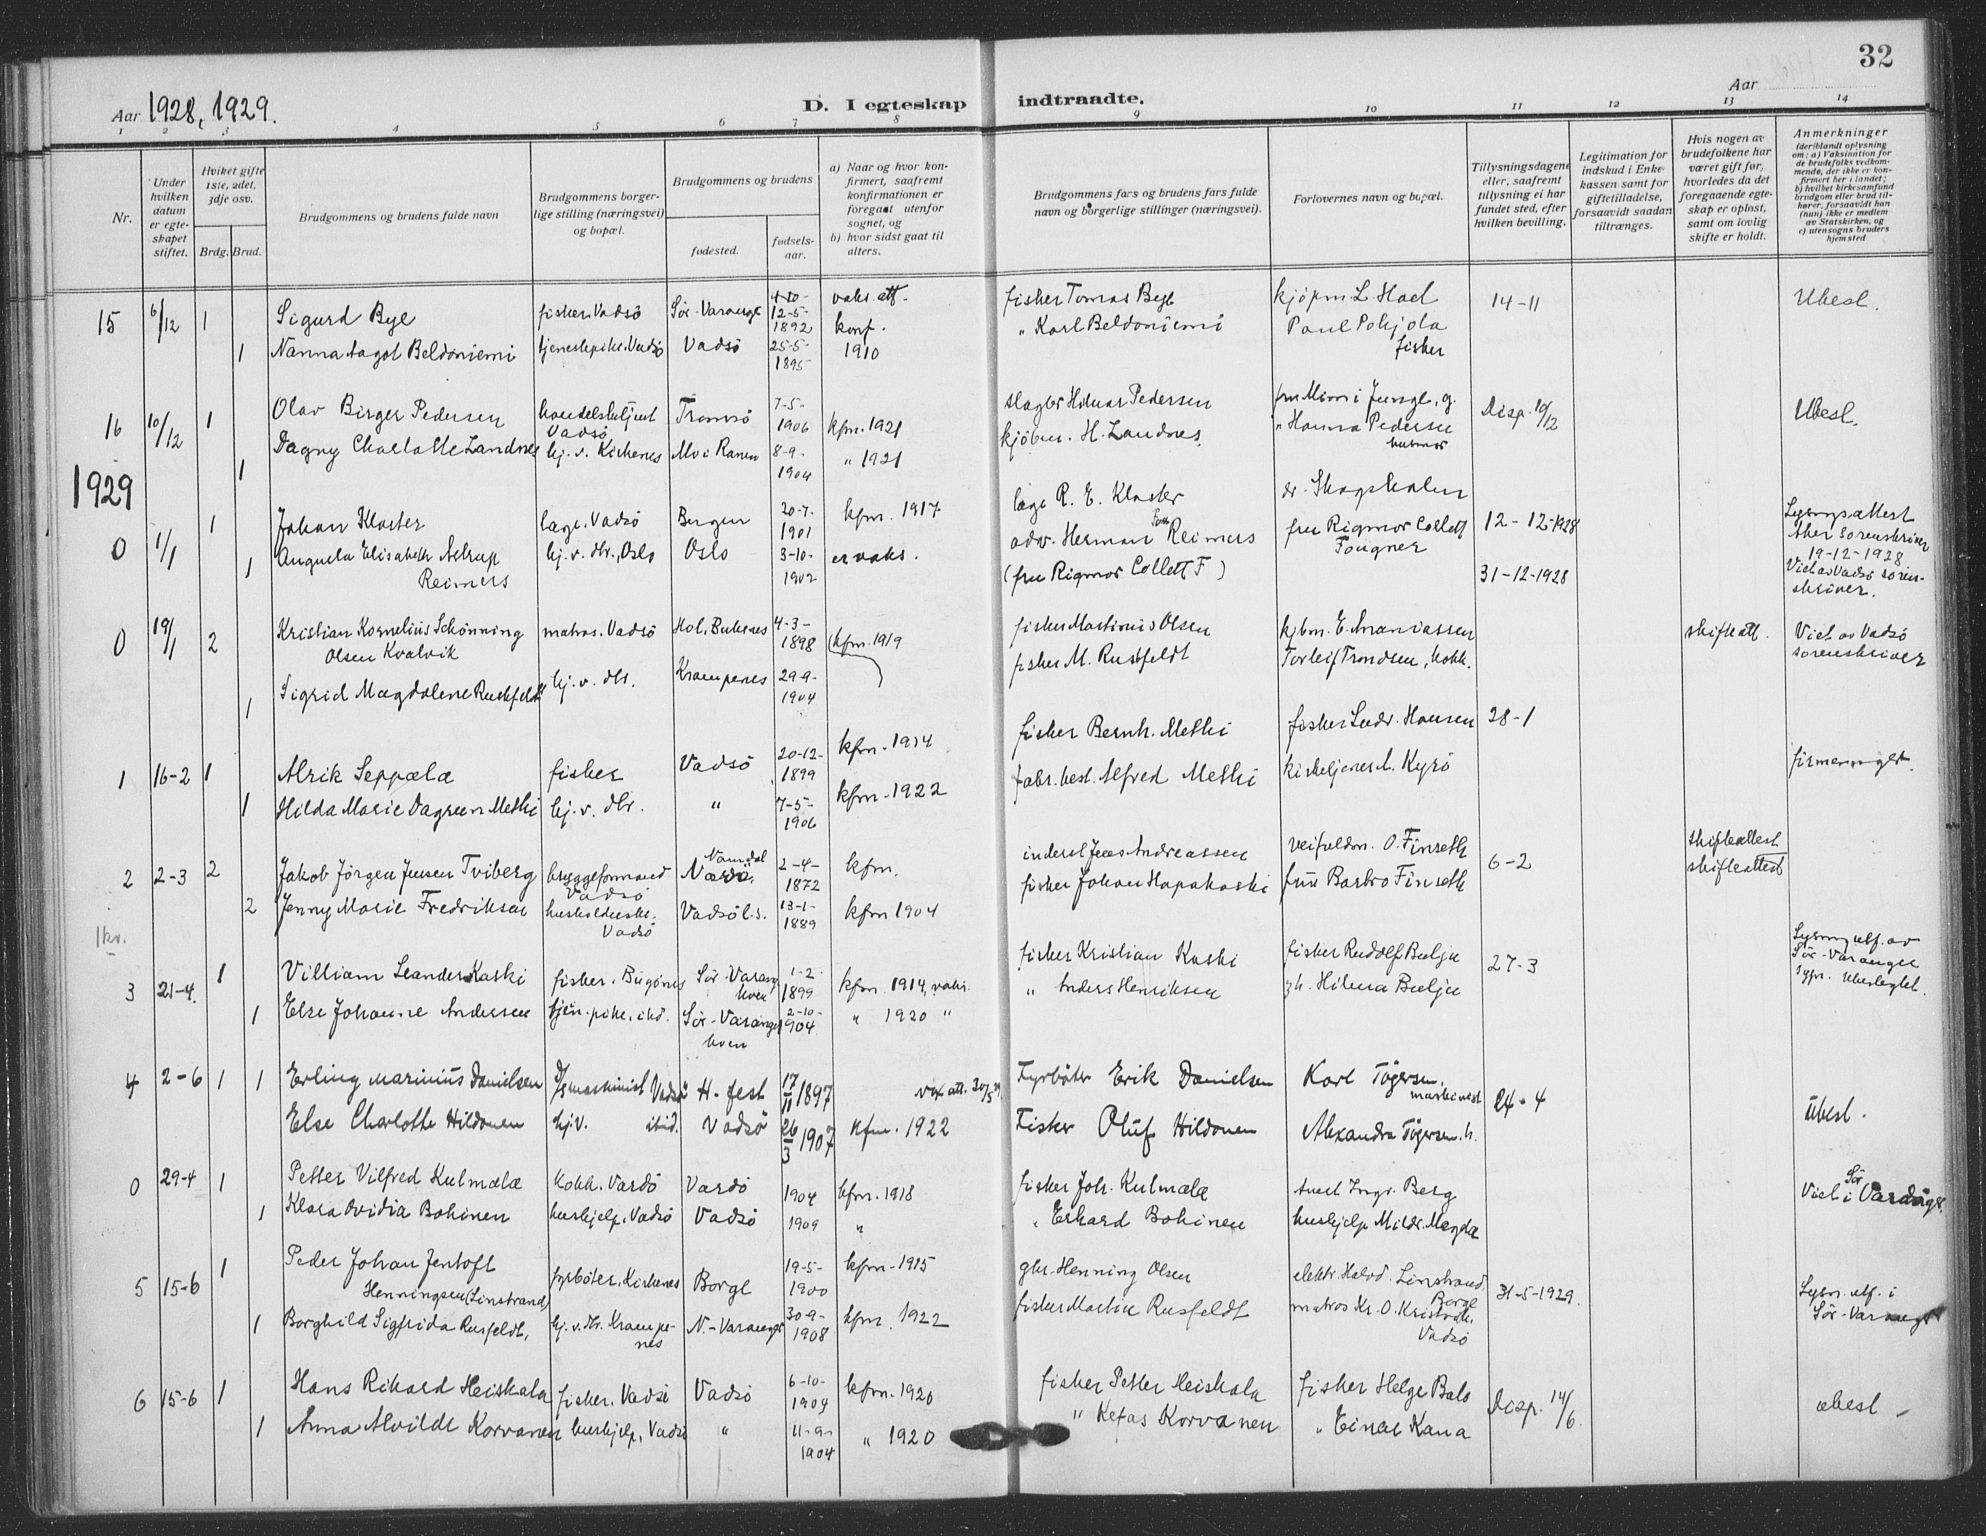 32
Aar 1928, 1929.
D. I egteskap indtraadte.
Aar
1 2 3 4 5 6 7 8 9 10 11 12 13 14
Nr.
Under hvilken datum er egteskapet stiftet.
Hvilket gifte 1ste, 2det, 3dje osv.
Brdg. Brud.
Brudgommens og brudens fulde navn
Brudgommens borgerlige stilling (næringsvei) og bopæl.
Brudgommens og brudens
fødested.
fødselsaar.
a) Naar og hvor konfirmert, saafremt konfirmationen er foregaat utenfor sognet, og
b) hvor sidst gaat til alters.
Brudgommens fars og brudens fars fulde navn og borgerlige stillinger (næringsvei).
Forlovernes navn og bopæl.
Tillysningsdagene eller, saafremt tillysning ei har fundet sted, efter hvilken bevilling.
Legitimation for indskud i Enkekassen samt for giftetilladelse, forsaavidt saadan tiltrænges.
Hvis nogen av brudefolkene har været gift før, hvorledes da det foregaaende egteskap er opløst, samt om lovlig skifte er holdt.
Anmerkninger
(deriblandt oplysning om: a) Vaksination for de brudefolks vedkommende, der ikke er konfirmert her i landet; b) hvilket kirkesamfund brudgom eller brud tilhører, forsaavidt han (hun) ikke er medlem av Statskirken, og c) utensogns bruders hjemsted
15 6/12 1 Sigurd Bye fisker, Vadsö Sör-Varanger 12-5-1892 vaks. att. fisker Tomas Bye kjöpm L. Hael 14-11 Ubesl.
1 Nanna Aagot Beldoniemi tjenestepike, Vadsö Vadsö 25-5-1895 konf. 1910 " Karl Beldoniemi Paul Pohjola fisker
16 10/12 1 Olav Birger Pedersen handelsbetjent Vadsö Tromsö 7-5-1906 kfm. 1921 slagter Hilmar Pedersen fru Mimi Junge, g. Disp. 10/12 Ubesl.
1 Dagny Charlotte Landnes hj. v. Kirkenes Mo i Ranen 8-9-1904 " 1921 kjöbm. H. Landnes. " Hanna Pedersen husmor
1929
0 1/1 1 Johan Kloster læge, Vadsö Bergen 20-7-1901 kfm. 1917 læge R. E. Kloster dr. Skogsholm 12-12-1928 Lysningsattest Aker sorenskriver 19-12-1928
1 Augusta Elisabeth Astrup Reimers hj. v. dtr., Oslo Oslo 3-10-1902 er vaks. adv. Herman Foss Reimers (fru Rigmor Collett F) fru Rigmor Collett Fougner 31-12-1928 Viet av Vadsö sorenskriver.
0 19/1 2 Kristian Kornelius Schönning Olsen Kvalvik matros, Vadsö Hol, Buksnes 4-3-1898 (kfm. 1919 fisker Martinus Olsen kjbm. E. Ananiassen skifteatt. Viet av Vadsö sorenskriver
1 Sigrid Magdalene Rushfeldt hj. v. dtr. Krampenes 29-9-1904 fisker M. Rusfeldt Torleif Trondsen, kokk.
1 16-2 1 Alrik Seppälä fisker Vadsö 20-12-1899 kfm. 1914 fisker Bernh. Methi fisker Ludv. Hansen 28-1 firmenninget.
1 Hilda Marie Dagrun Methi hj. v. dtr. " 7-5-1906 kfm. 1922 fabr. best. Alfred Methi kirketjener A. Kyrö
2 2-3 2 Jakob Jörgen Jensen Tviberg bryggeformand Vadsö Namdal 2-4-1872 kfm. inderst Jens Andreassen veifuldm. O. Finseth 6-2 Skifteattest
2 Jenny Marie Fredriksen husholderske. Vadsö Vadsö l.s. 13-1-1889 kfm 1904 fisker Johan Hapakoski frue Barbro Finseth skifteattest
1 kv.
3 21-4. 1 Villiam Leander Kaski fisker, Bugönes Sör-Varanger 1-2-1899 kfm. 1914, vaks. fisker Kristian Kaski fisker Rudolf Belju 27-3 Lysning utf. av Sör-Varanger sypr. Ubeslegtet.
1 Else Johanne Andersen tjen.pike, itid. Sör-Varanger 2-10-1904 " 1920 " " Anders Henriksen gh. Hilma Belju
4 2-6 1 1 Erling Marinius Danielsen Maskinist Vadsö H-fest 17/11 1897 vax att. 30/5 29 Fyrböter Erik Danielsen Karl Tögersen, maskinist 24-4 Ubesl.
Else Charlotte Hildonen hj.v. itid. Vadsö 26/3 1907 kfm. 1922 Fisker Oluf Hildonen Alexandra Tögersen. h.
0 29-4 1 Petter Vilfred Kulmala kokk, Vardö Vardö 1904 kfm. 1918 fisker Joh. Kulmala Berg Viet i Sör Varanger.
1 Klara Ovidia Bohinen hushjelp, Vadsö Vadsö 1909 " " Erhard Bohinen hushjelp Mildr. Magda
5 15-6 1 Peder Johan Jentoft Henningsen (Linstrand) fyrböter, Kirkenes Borge 19-5-1900 kfm. 1915 gbr. Henning Olsen elektr. Halvd. Linstrand, Borge 31-5-1929. Lysn. utf. i Sör-Varanger
1 Borghild Sigfrida Rusfeldt, hj. v. dtr. Krampenes N.-Varanger 30-9-1908 kfm. 1922 fisker Martin Rusfeldt matros Kr. O. Kvalvik, Vadsö
6 15-6 1 Hans Rikard Heiskala fisker, Vadsö Vadsö 6-10-1904 kfm. 1920 fisker Petter Heiskala fisker Helge Balo Disp. 14/6. ubesl
1 Anna Alvilde Korvanen hushjelp, Vadsö " 11-9-1904 " 1920 " Kefas Korvanen " Einar Kana